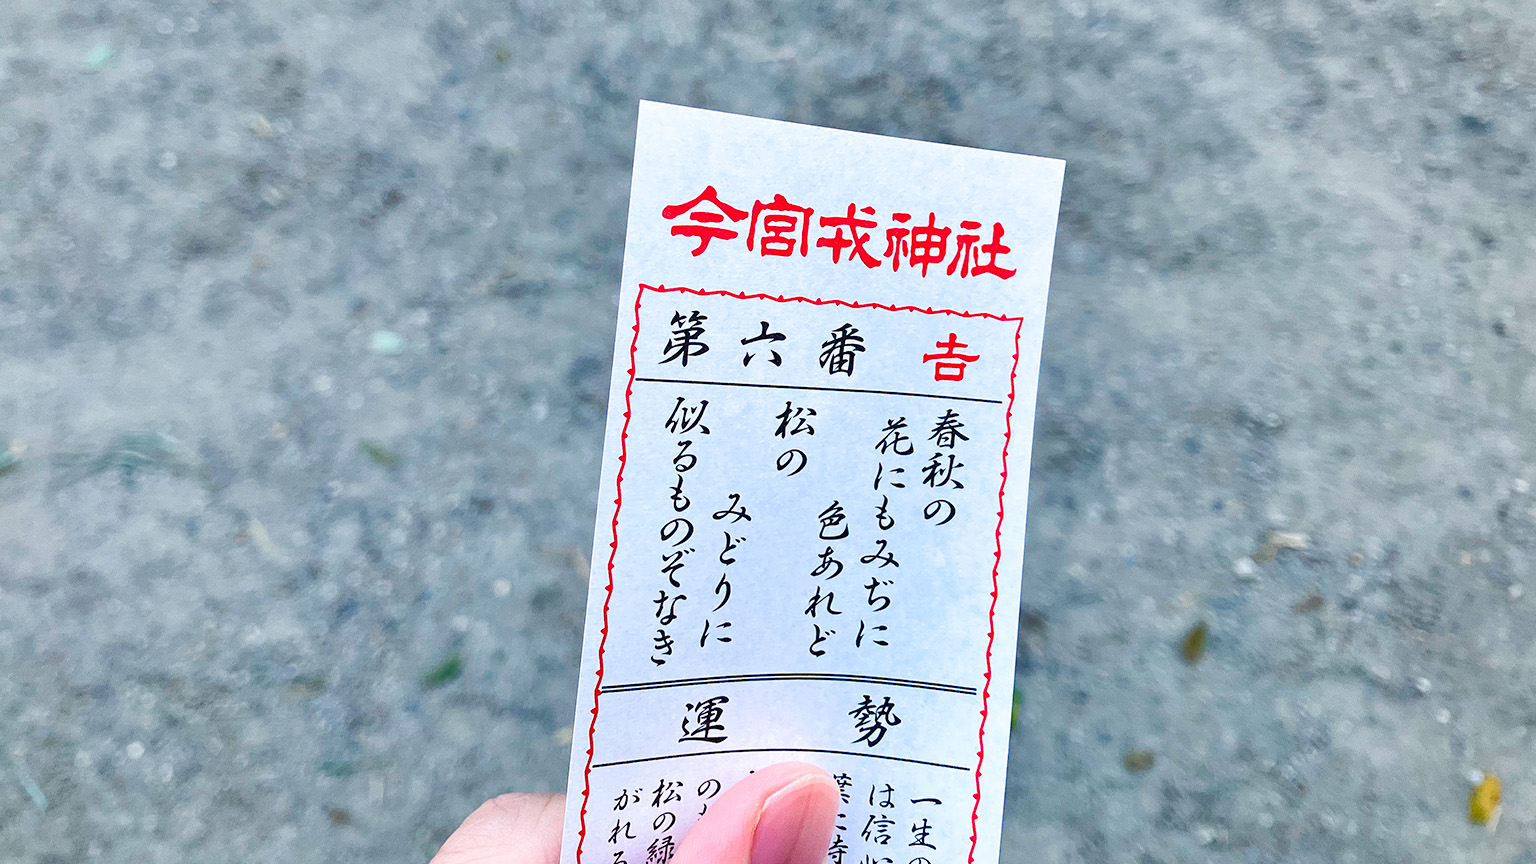 今宮戎神社
第六番 吉
春秋の
花にもみぢに
色あれど
松の
みどりに
似るものぞなき
運勢
一生の
は信心
葉に時
の
松の緑
がれる